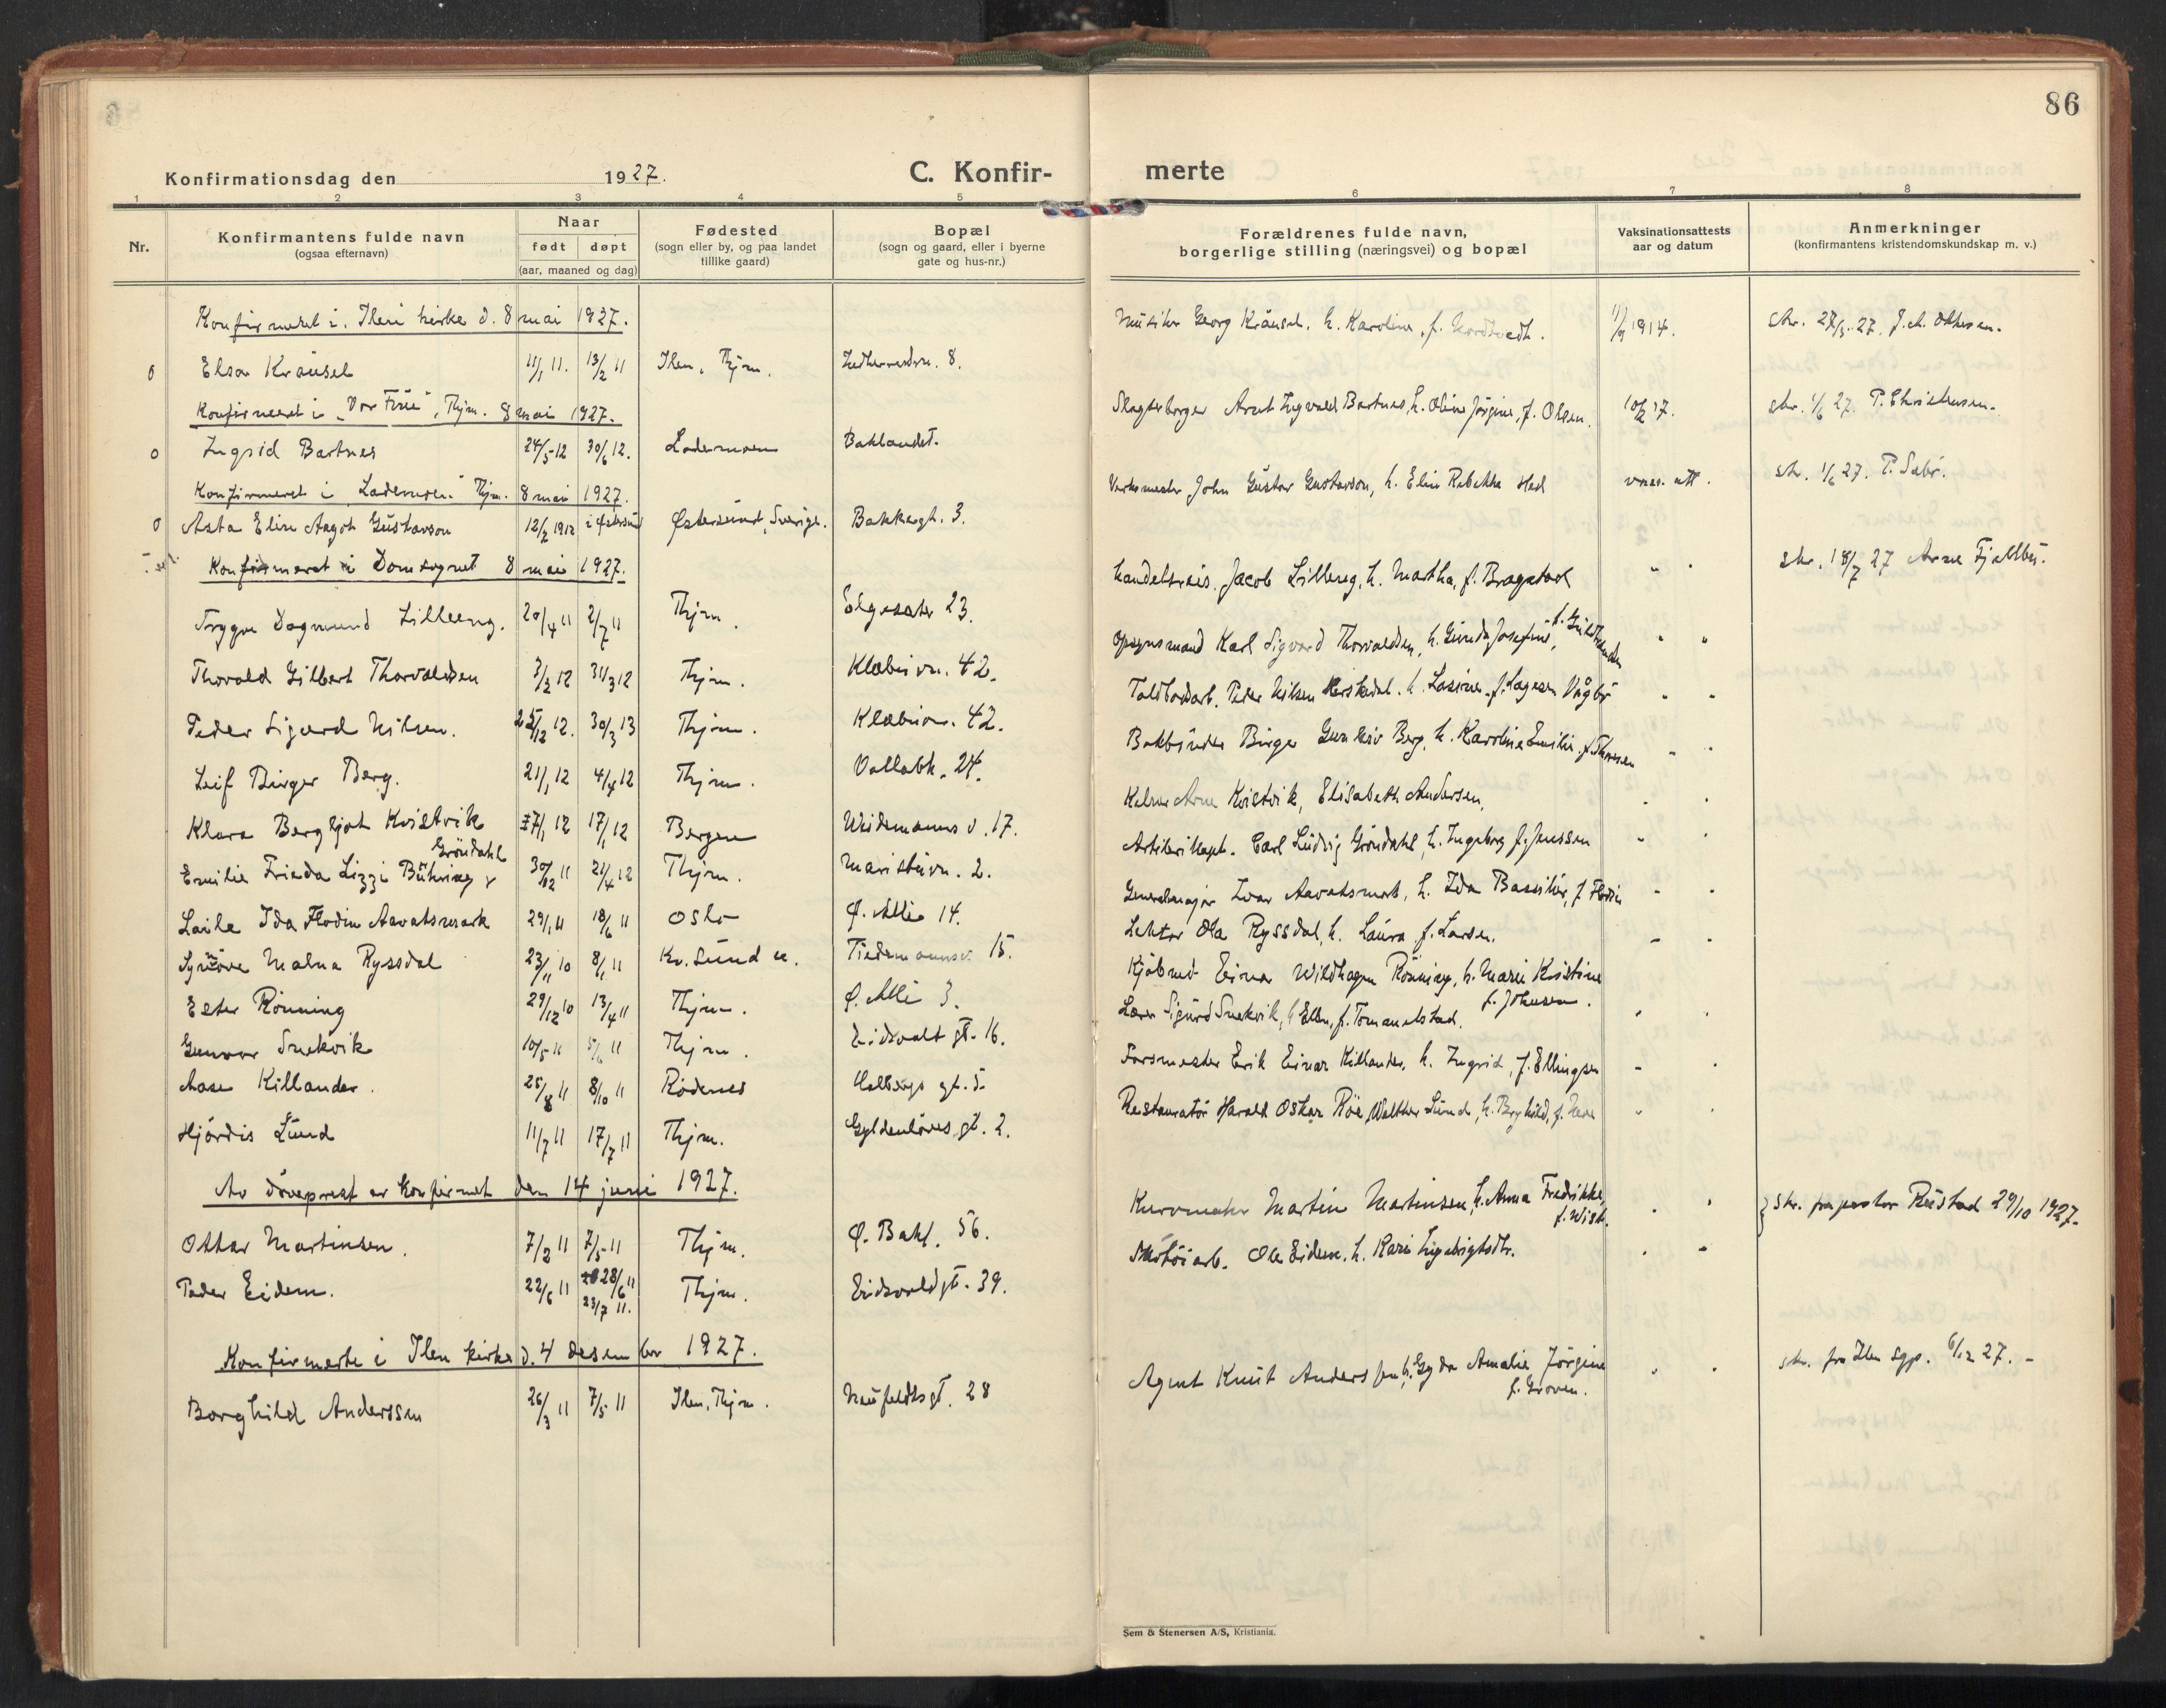 86
Konfirmationsdag den 1927. C. Konfir- merte
1 2 3 4 5 6 7 8
Nr. Konfirmantens fulde navn (ogsaa efternavn) Naar født døpt (aar, maaned og dag) Fødested (sogn eller by, og paa landet tillike gaard) Bopæl (sogn og gaard, eller i byerne gate og hus-nr.) Forældrenes fulde navn, borgerlige stilling (næringsvei) og bopæl Vaksinationsattests aar og datum Anmerkninger (konfirmantens kristendomskundskap m. v.)
Konfirmeret i Ilen kirke d. 8 mai 1927.
o Elsa Kräusel 11/1 11. 13/2 11 Ilen, Thjm. 8. Musiker Georg Kräusel, h. Karoline, f. Nordtvedt. 1914. skr. 27/5 27.
Konfirmeret i "Vor Frue", Thjm. 8 mai 1927.
o Ingrid Bartnes 24/5 12 30/6 12. Lademoen Baklandet. Arnt Ingvald Bartnes, h. Oline Jørgine, f. Olsen. 10/2 17. skr. 1/6 27. P. Christensen.
Konfirmeret i Lademoen Thjm. 8 mai 1927.
o Asta Elin Aagot Gustavson 12/2 1912 i Østersund Østersund, Sverige. Bakkegt. 3. Verksmester John Gustav Gustavson, h. Elin Rebekka Hed vacc. att. skr. 1/6 27. P. Sæbø.
Konfirmeret i Domsognet 8 mai 1927.
Trygve Dagmund Lilleeng. 20/4 11 2/7 11 Thjm. Elgesæter 23. Handelsreis. Jacob Lilleeng, h. Martha, f. Bragstad " " skr. 18/7 27 Arne Fjellbu.
Thorvald Gilbert Thorvaldsen 3/2 12 31/3 12 Thjm. Klæbuvn. 42. Opsynsmand Karl Sigvard Thorvaldsen, h. Gunda Josefine, " "
Peder Sigurd Nilsen. 25/12 12. 30/3 13 Thjm. Klæbuvn. 42. Toldbodarb. Peder Nilsen h. Lasine, " "
Leif Birger Berg. 21/1 12 4/4 12 Thjm. Vollabk. 24. Bokbinder Birger Berg, h. Karoline Emilie, f. Thoresen " "
Klara Bergljot Kvistvik 27/1 12 17/1 12 Bergen Weidemanns v. 17. Kelner Arne Kvistvik, Elisabeth Andersen, " "
Emilie Frieda Lizzi Bühring Gröndahl 30/12 11 21/4 12 Thjm. Maristuvn. 2. Artillerikapt. Carl Ludvig Gröndahl, h. Ingeborg f. Jenssen " "
Laila Ida Flodin Aavatsmark 29/1 11 18/6 11 Oslo Ø. Allé 14. Generalmajor Ivar Aavatsmark, h. Ida f. Flodin " "
Synnöve Malna Ryssdal 23/11 10 8/1 11 Kr. Sund N. Tidemannsv. 15. Lektor Ola Ryssdal, h. Laura f. Larsen. " "
Ester Rönning 29/12 10 13/4 11 Thjm. Ø. Allé 3. Kjøbmd. Einar Wildhagen Rönning, h. Marie Kristine f. Johnsen. " "
Gunvor Snekvik 10/5 11 5/6 11 Thjm. Eidsvolds gt. 16. Lærer Sigurd Snekvik, h. Ellen, f. Tomanelstad.
Aase Killander. 25/8 11 8/10 11 Rödenes Holbergs gt. 5. Forsmester Erik Einar Killander, h. Ingrid, f. Ellingsen " "
Hjördis Lund 11/7 11 17/7 11 Thjm. Gyldenløves gt. 2. Restauratör Harald Oskar Röe Walther Lund, h. Borghild, " "
Av döveprest er konfirmert den 14 juni 1927.
Ottar Martinsen. 7/2 11 7/5 11 Thjm. Ø. Bakl. 56. Kurvmaker Martin Martinsen, h. Anna Fredrikke, f. Wist. " " } Skr. fra pastor Rustad 29/10 1927.
Peder Eidem. 22/6 11 28/6 11 23/7 11. Thjm. Eidsvoldgt. 39. Skotöiarb. Ole Eidem, h. Kari Ingebrigtsdtr. " "
Konfirmerte i Ilen kirke d. 4 desember 1927.
Borghild Anderssen 26/3 11 7/5 11 Ilen, Thjm. Naufeldtsgt. 28 Agent Knut Anderssen, h. Gyda Amalie Jörgine f. Groven. " " skr. fra Ilen sgp. 6/12 27. -
Sem & Stenersen A/S, Kristiania.